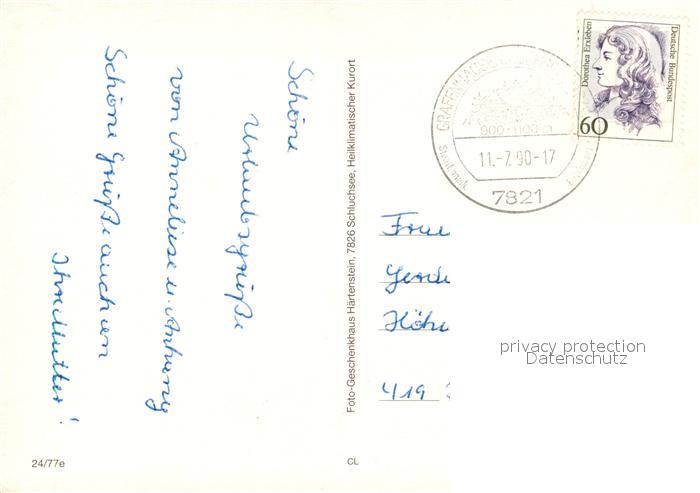 Schöne
Urlaubsgrüße
von Anneliese u. Anton
Schöne Grüße auch an
Ihre Mutter!
24/77e
Foto-Geschenkhaus Härtenstein, 7826 Schluchsee, Heilklimatischer Kurort
CL
GRAFENHAUSEN
900-1100 m
11.-7.90-17
7821
Dorothea Erxleben
Deutsche Bundespost
60
Frau
Gerda
419
privacy protection
Datenschutz